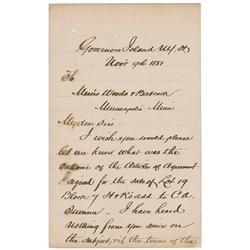 Governors Island N.Y. H.
Novr 9th 1881
To
Messrs Woods & Babcock
Minneapolis Minn
My dear Sirs
I wish you would please
let me know what was the
outcome of the Articles of Agreement
I signed for the sale of Lot 19
Block 7 H & R's add to C. A.
I have heard
nothing from you since on
the subject, & if the terms of the